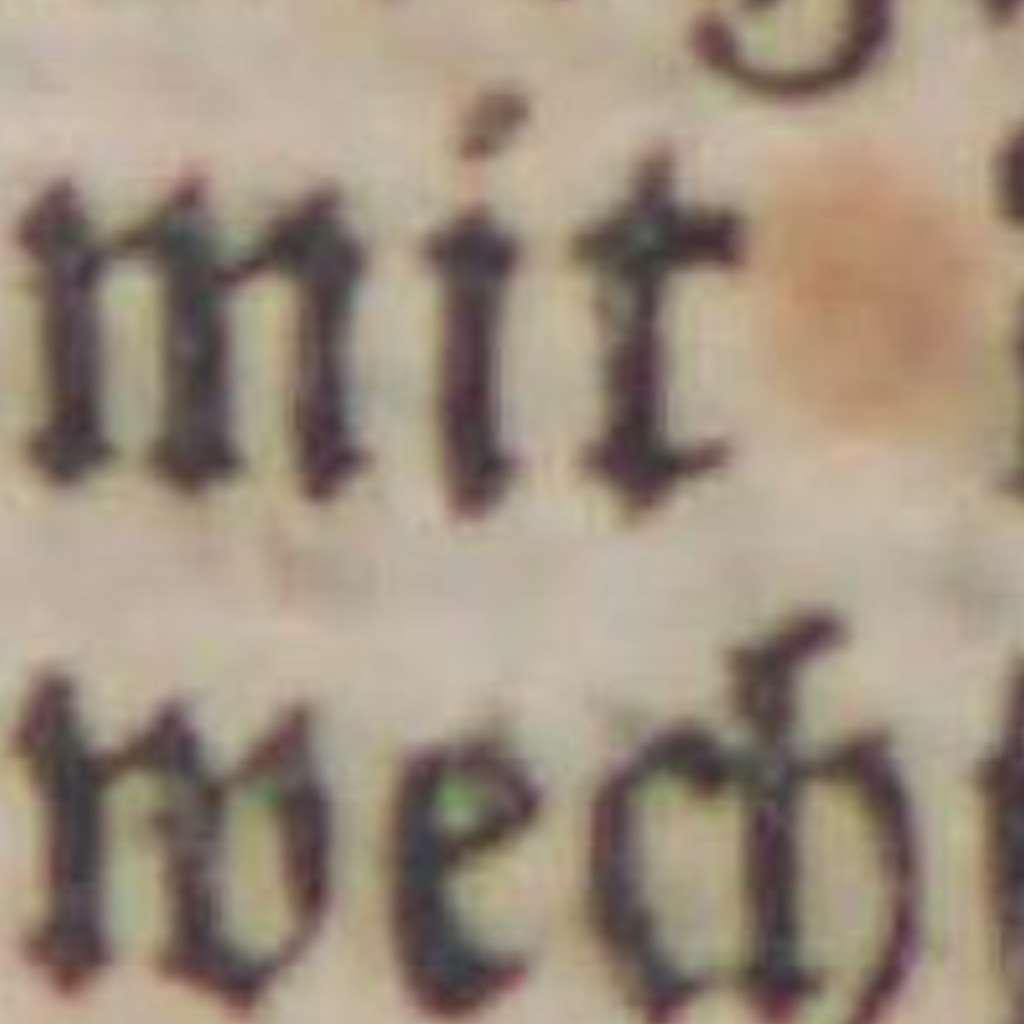 mit
wech